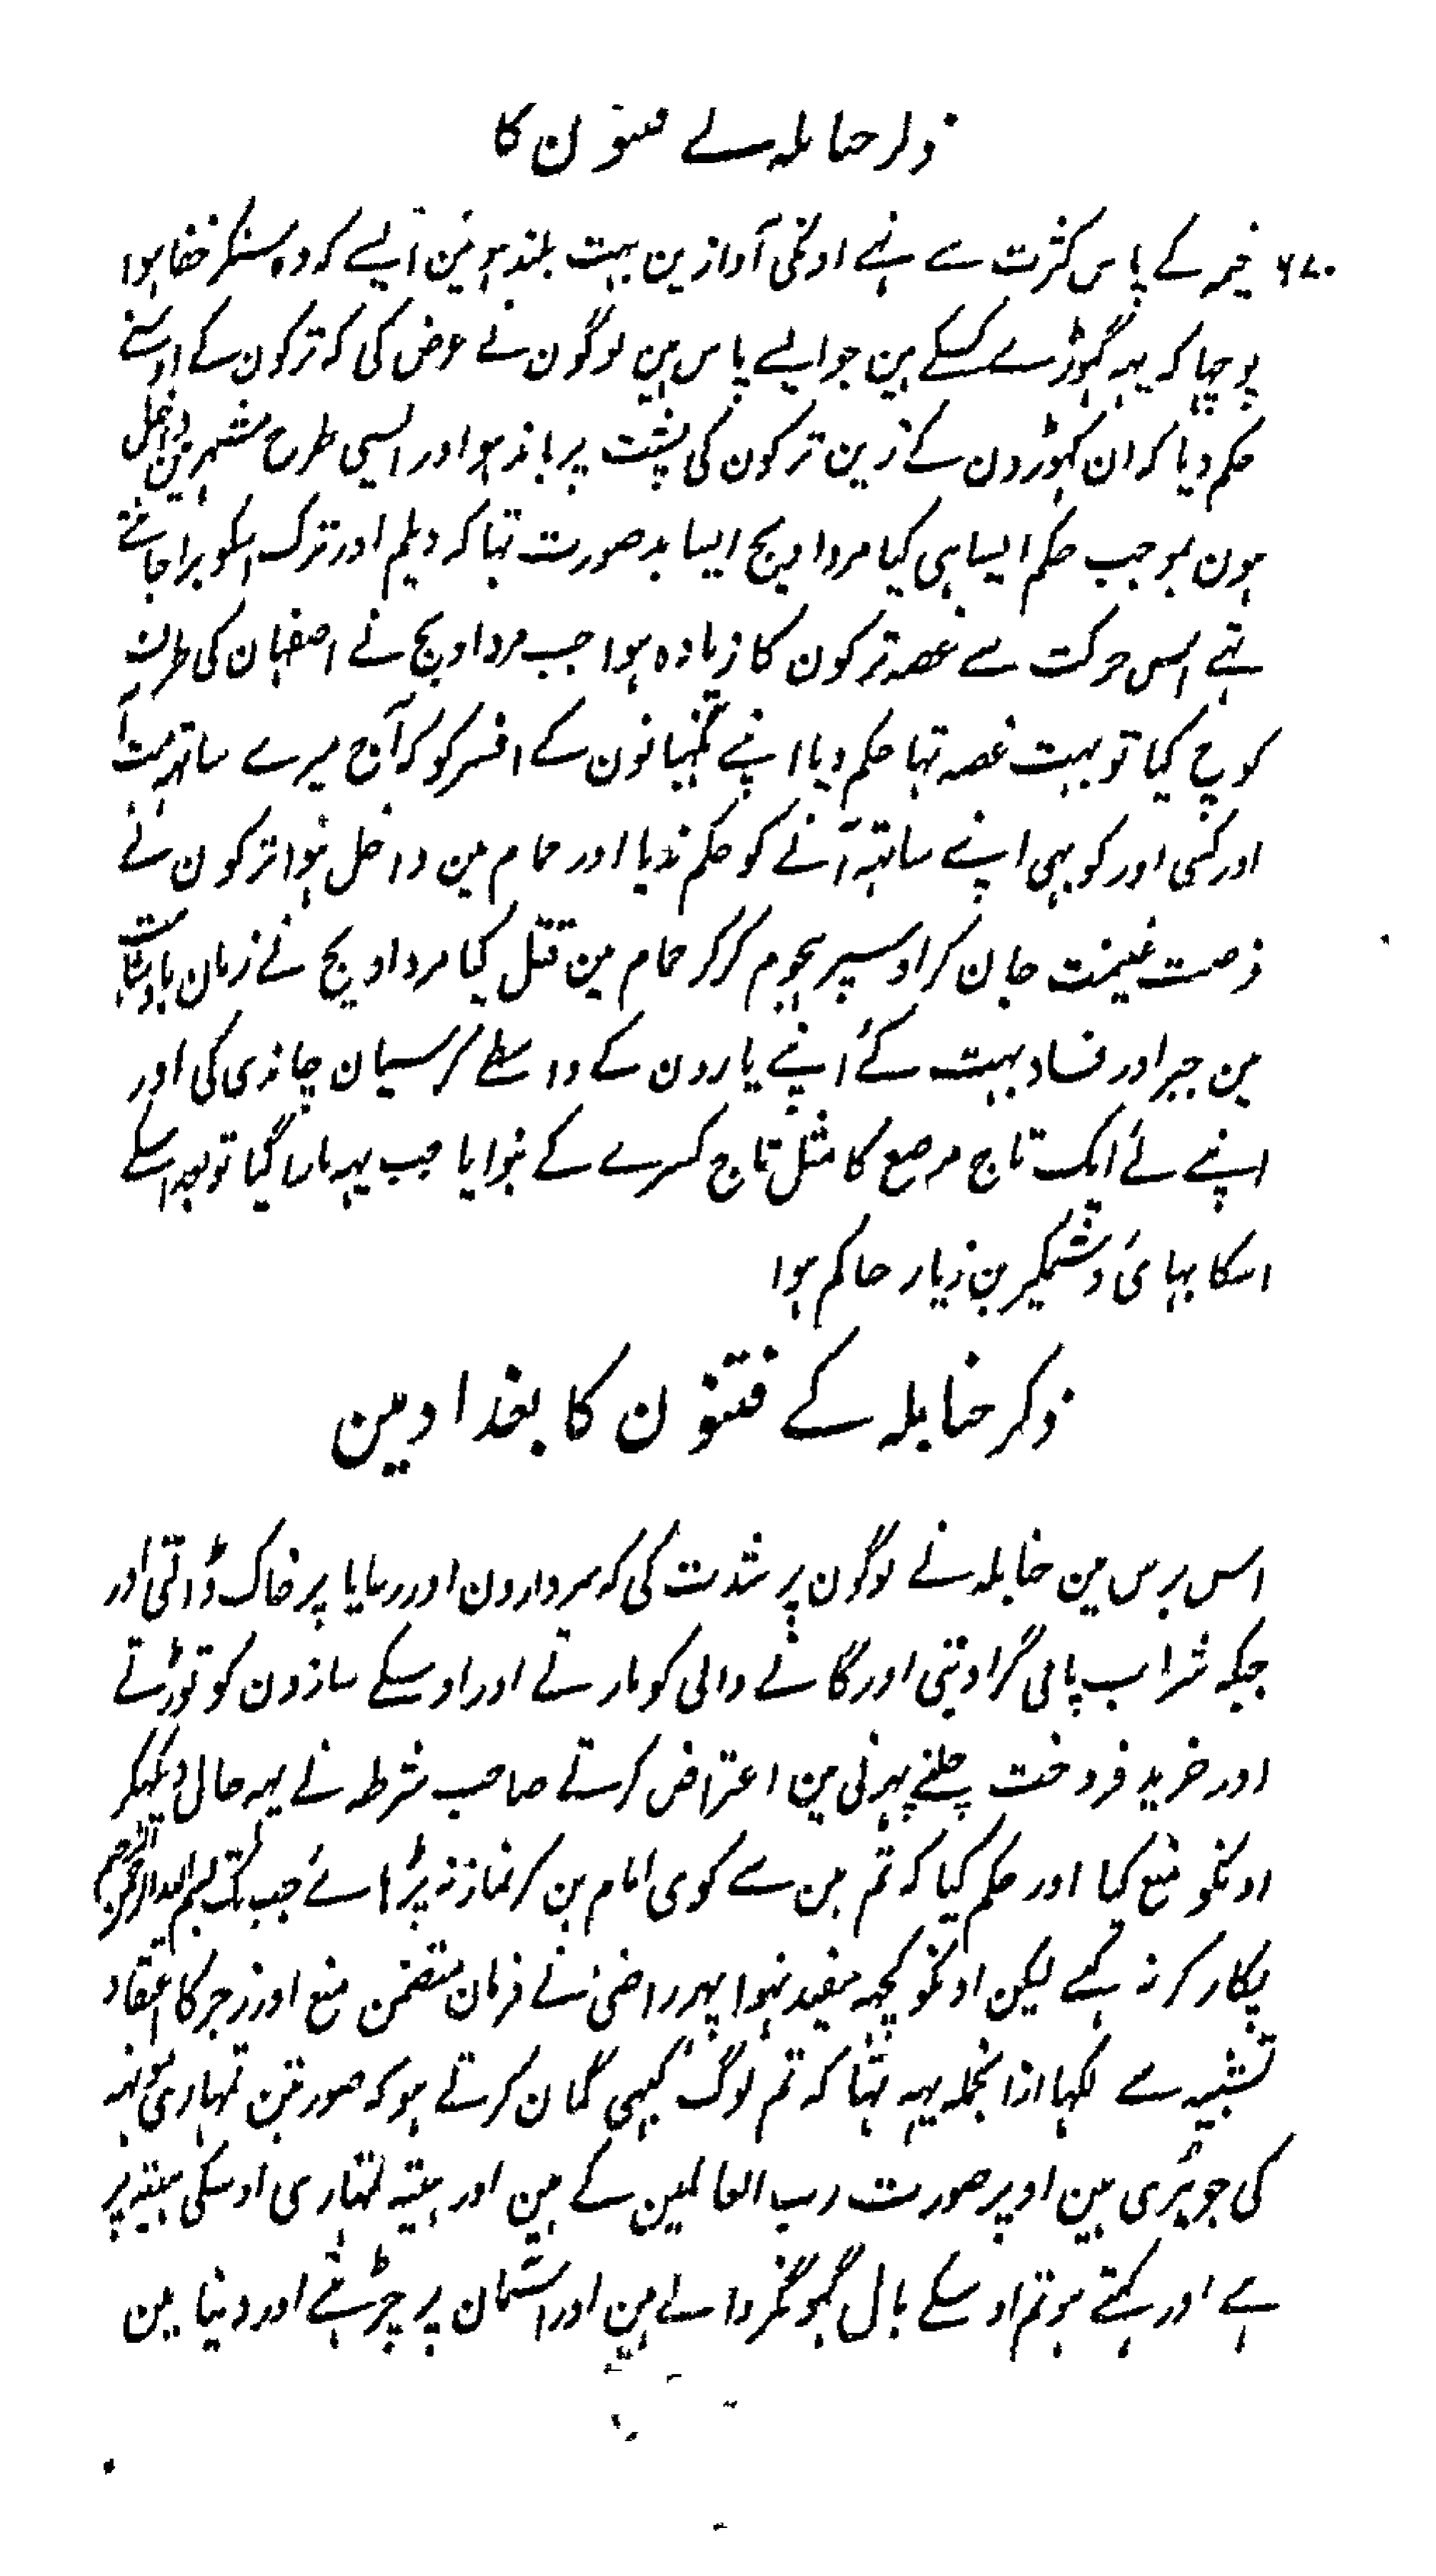 ذکر حنابلہ کے فتنون کا
۶۷۰ خیمہ کے پاس کثرت سے تہے اونکی آوازین بہت بلند ہوئین ایسے کہ وہ سنکر خفا ہوا
پوچہا کہ یہہ گہوڑے کسکے ہین جو ایسے پاس ہین لوگون نے عرض کی کہ ترکون کے اوسنے
حکم دیا کہ ان گہوڑون کے زین ترکون کی پشت پر باندہو اور اسی طرح شہر مین داخل
ہون بموجب حکم ایسا ہی کیا مرداویج ایسا بدصورت تہا کہ دیلم اور ترک اسکو برا جانتے
تہے اس حرکت سے غصہ ترکون کا زیادہ ہوا جب مرداویج نے اصفہان کی طرف
کوچ کیا تو بہت غصہ تہا حکم دیا اپنے نگہبانون کے افسر کو کہ آج میرے ساتہہ مت آ
اور کسی اور کو بہی اپنے ساتہہ آنے کو حکم ندیا اور حمام مین داخل ہوا ترکون نے
فرصت غنیمت جان کر اوسپر ہجوم کر کر حمام مین قتل کیا مرداویج نے زمان بادشاہت
مین جبر اور فساد بہت کئے اپنے یارون کے واسطے کرسیان چاندی کی اور
اپنے لئے ایک تاج مرصع کا مثل تاج کسرے کے بنوایا جب یہہ مارا گیا تو بعد اسکے
اسکا بہائی وشمگیر بن زیار حاکم ہوا
ذکر حنابلہ کے فتنون کا بغداد مین
اس برس مین حنابلہ نے لوگون پر شدت کی کہ سردارون اور رعایا پر خاک ڈالتی اور
جبکہ شراب پاتی گرا دیتی اور گانے والی کو مارتے اور اوسکے سازون کو توڑتے
اور خرید فروخت چلنے پہرنی مین اعتراض کرتے صاحب شرطہ نے یہہ حال دیکہکر
اونکو منع کیا اور حکم کیا کہ تم مین سے کوی امام بن کر نماز نہ پڑہائے جب تک بسم اللہ الرحمن الرحیم
پکار کر نہ کہے لیکن اونکو کچہہ مفید نہوا پہر راضی نے فرمان متضمن منع اور زجر کا اعتقاد
تشبیہ سے لکہا ازانجملہ یہہ تہا کہ تم لوگ کبہی گمان کرتے ہو کہ صورتین تمہاری مونہہ
کی جو بری ہین اوپر صورت رب العالمین کے ہین اور ہیئتہ تمہاری اوسکی ہیئتہ پر
ہے اور کہتے ہو تم اوسکے بال گہونگر والے ہین اور آسمان پر چڑہتے اور دنیا مین